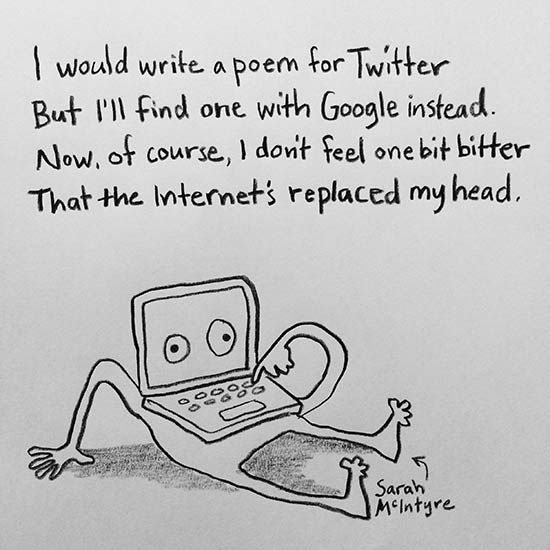 I would write a poem for Twitter
But I'll find one with Google instead.
Now, of course, I don't feel one bit bitter
That the Internet's replaced my head.
Sarah
McIntyre